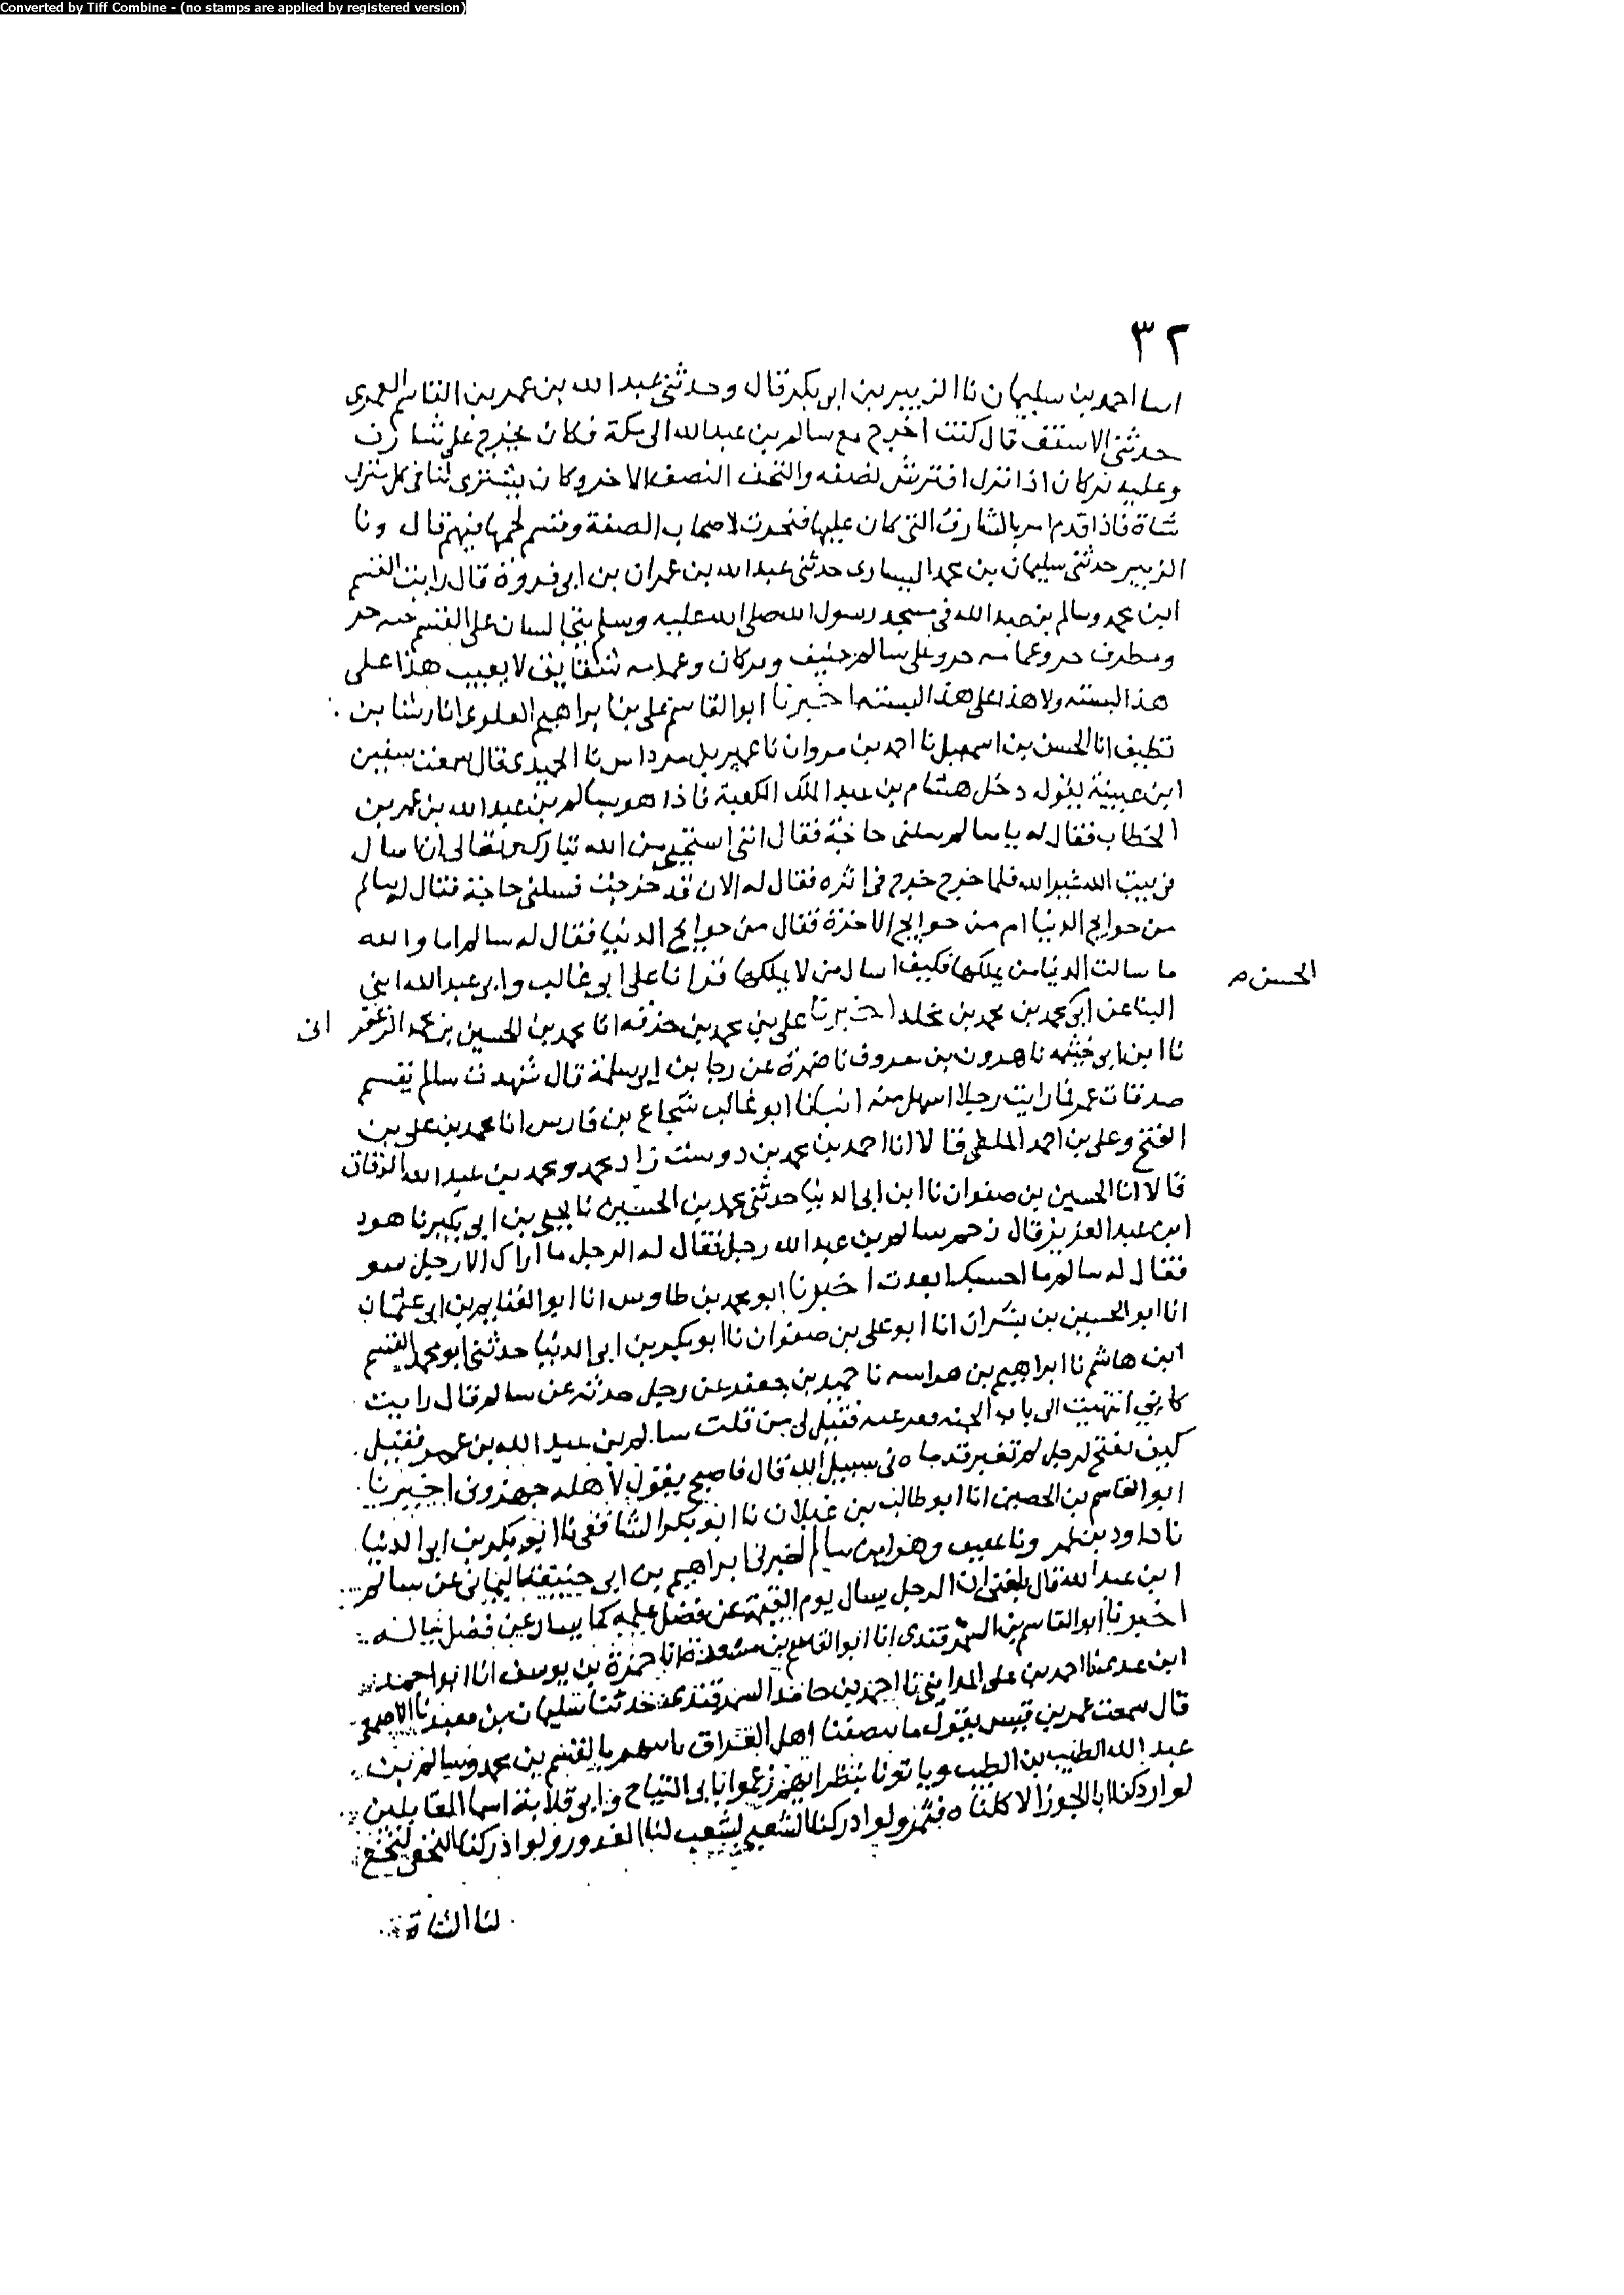 Converted by Tiff Combine - (no stamps are applied by registered version)
٣٢
احمد بن سليمان نا الزبير بن ابى بكر قال وحدثنى عبد الله بن عمر بن القاسم العمرى
حدثنى الاسقف قال كنت اخرج مع سالم بن عبد الله الى مكة فكان يخرج على شارف
وعليه بركان اذا نزل افترش نصفه والتحف النصف الاخر وكان يشترى لنا فى كل منزل
شاة فاذا قدم امر بالشارف التى كان عليها فنحرت لاصحاب الصفة وقسم لحمها فيهم قال ونا
الزبير حدثنى سليمان بن محمد اليسارى حدثنى عبد الله بن عمران بن ابى فروة قال رايت القسم
ابن محمد وسالم بن عبد الله فى مسجد رسول الله صلى الله عليه وسلم يتجالسان على القسم
ومطرف وعمامه وعلى سالم وبركان وعمامه لا يعيب هذا على
هذا لبسته ولا هذا على هذا لبسته اخبرنا ابو القاسم على بن ابراهيم العلوى انا رشا بن
نظيف انا الحسن بن اسمعيل نا احمد بن مروان نا عمير بن مرداس نا الحميدى قال سمعت سفين
ابن عيينة يقول دخل هشام بن عبد الملك الكعبة فاذا هو بسالم بن عبد الله بن عمر بن
الخطاب فقال له يا سالم سلنى حاجة فقال انى استحى من الله تبارك وتعالى ان اسال
فى بيت الله غير الله فلما خرج خرج فى اثره فقال له الان قد خرجت فسلنى حاجة فقال له سالم
من حوايج الدنيا ام من حوايج الاخرة فقال من حوايج الدنيا فقال له سالم اما والله
ما سالت الدنيا من يملكها فكيف اسال من لا يملكها قرانا على ابى غالب وابى عبد الله ابنى
الحسن
البنا عن ابى محمد بن محمد بن مخلد اخبرنا على بن محمد بن خزفه انا محمد بن الحسين بن محمد الزعفر انى
نا ابن ابى خيثمه نا هرون بن معروف نا ضمرة عن رجا بن ابى سلمة قال شهدت سالم يقسم
صدقات عمر فما رايت رجلا اسهل منه انبانا ابو غالب شجاع بن فارس انا محمد بن على بن
الفتح وعلى بن احمد الملطى قالا انا احمد بن محمد بن دوست زاد محمد ومحمد بن عبد الله الدقاق
قالا انا الحسين بن صفوان نا ابن ابى الدنيا حدثنى محمد بن الحسين نا يحيى بن ابى بكير نا هود
ابن عبد العزيز قال زحم سالم بن عبد الله رجل فقال له الرجل ما اراك الا رجل سو
فقال له سالم ما احسبك ابعدت اخبرنا ابو محمد بن طاوس انا ابو الغنايم بن ابى عثمان
انا ابو الحسين بن بشران انا ابو على بن صفوان نا ابو بكر بن ابى الدنيا حدثنى ابو محمد القسم
ابن هاشم نا ابراهيم بن هراسه نا حميد بن جعفر عن رجل حدثه عن سالم قال رايت
كانى انتهيت الى باب الجنه فقيل لى من قلت سالم بن عبد الله بن عمر فقيل
كيف يفتح لرجل لم تغبر قدماه فى سبيل الله قال فاصبح يقول لاهله جهزونى اخبرنا
ابو القاسم بن الحصين انا ابو طالب بن غيلان نا ابو بكر الشافعى نا ابو بكر بن ابى الدنيا
نا داود بن عمر ونا عفيف وهو ابن سالم اخبرنى ابراهيم بن ابى حنيفة اليمانى عن سالم
ابن عبد الله قال بلغنى ان الرجل يسال يوم القيمة عن فضل علمه كما يسال عن فضل ماله
اخبرنا ابو القاسم بن السمرقندى انا ابو القاسم بن مسعدة انا حمزة بن يوسف انا ابو احمد
ابن عدى نا احمد بن على المداينى نا احمد بن حامد السمرقندى حدثنا سليمان بن معبد نا الاصمعى
قال سمعت عمر بن قيس يقول ما ينصفنا اهل العراق ناتيهم بالقسم بن محمد وسالم بن
عبد الله الطيب بن الطيب وياتونا بنظرايهم زعموا بابى التياح وابى قلابة اسما المقاتلين
لو ادركنا ابا الجوزا لاكلناه بتمر ولو ادركنا الشعبى لشعب لنا القدور ولو ادركنا النخعى لنخع
لنا الشاة